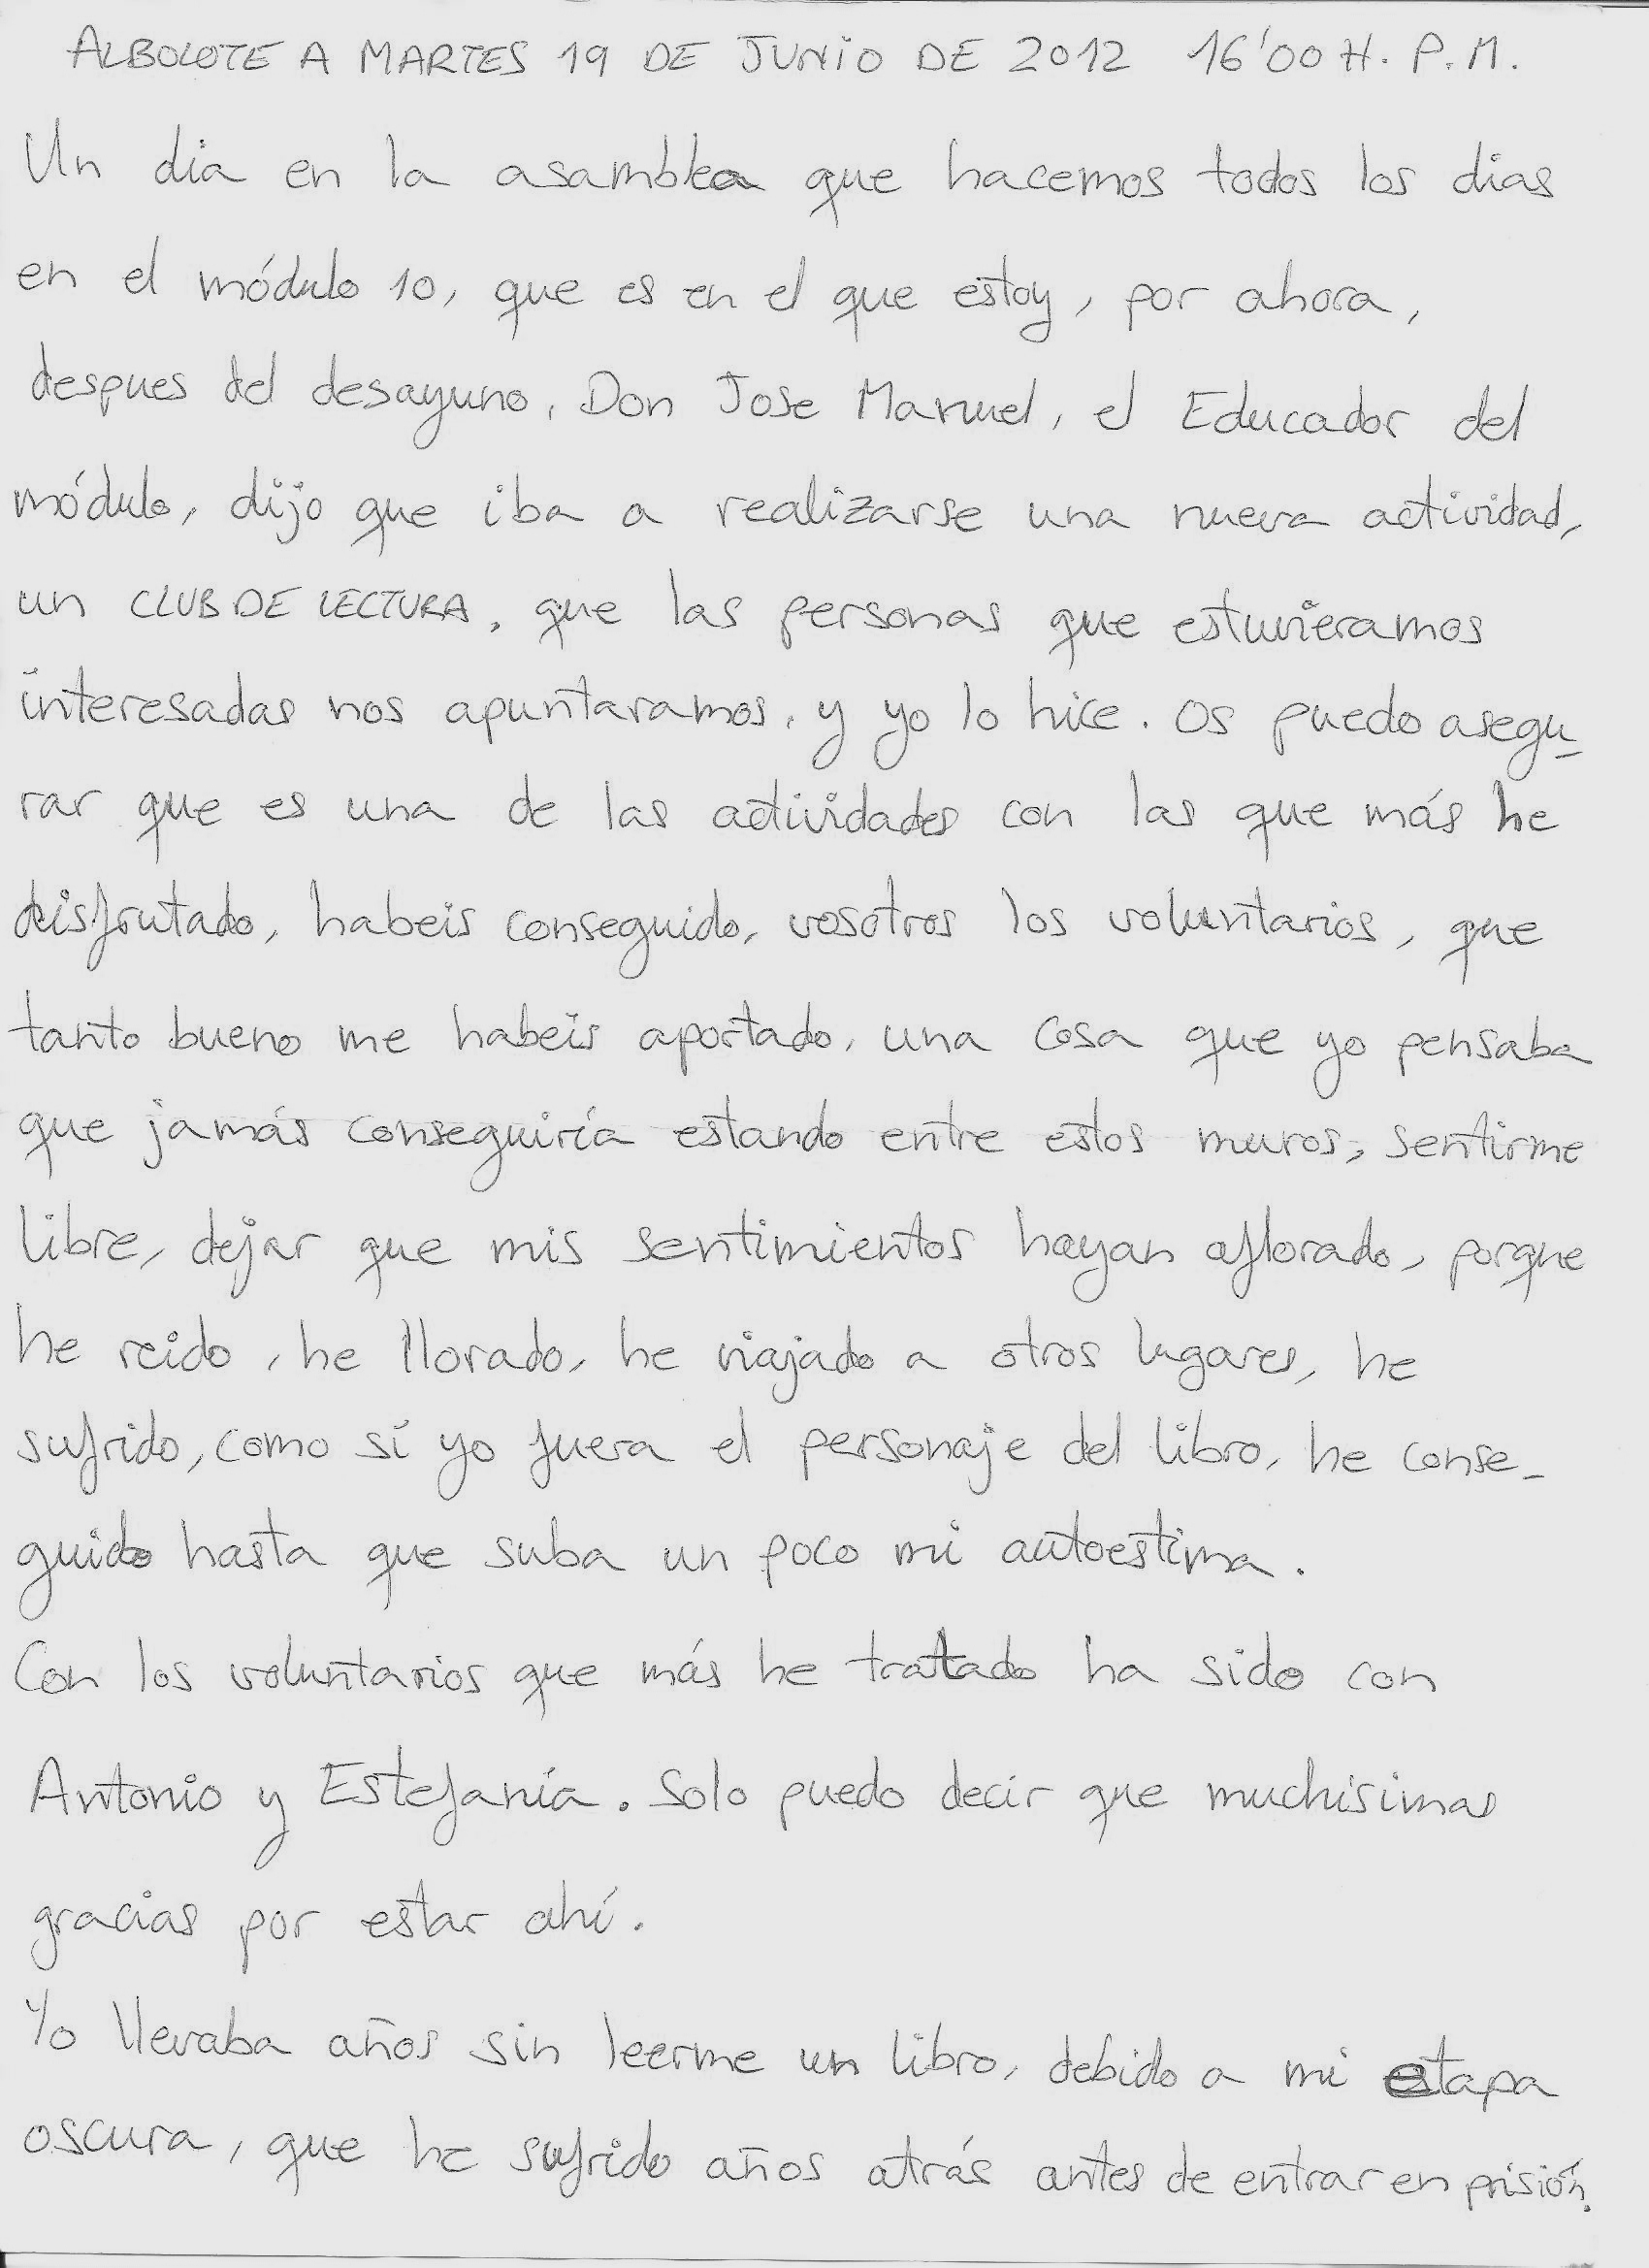 ALBOLOTE A MARTES 19 DE JUNIO DE 2012 16'00 H. P.M.
Un dia en la asamblea que hacemos todos los dias
en el módulo 10, que es en el que estoy, por ahora,
despues del desayuno, Don Jose Manuel, el Educador del
módulo, dijo que iba a realizarse una nueva actividad,
un CLUB DE LECTURA, que las personas que estuvieramos
interesadas nos apuntaramos, y yo lo hice. Os puedo asegu-
rar que es una de las actividades con las que más he
disfrutado, habeis conseguido, vosotros los voluntarios, que
tanto bueno me habeis aportado, una cosa que yo pensaba
que jamás conseguiría estando entre estos muros, sentirme
libre, dejar que mis sentimientos hayan aflorado, porque
he reido, he llorado, he viajado a otros lugares, he
sufrido, como si yo fuera el personaje del libro, he conse-
guido hasta que suba un poco mi autoestima.
Con los voluntarios que más he tratado ha sido con
Antonio y Estefanía. Solo puedo decir que muchisimas
gracias por estar ahí.
Yo llevaba años sin leerme un libro, debido a mi etapa
oscura, que he sufrido años atrás antes de entrar en prisión.